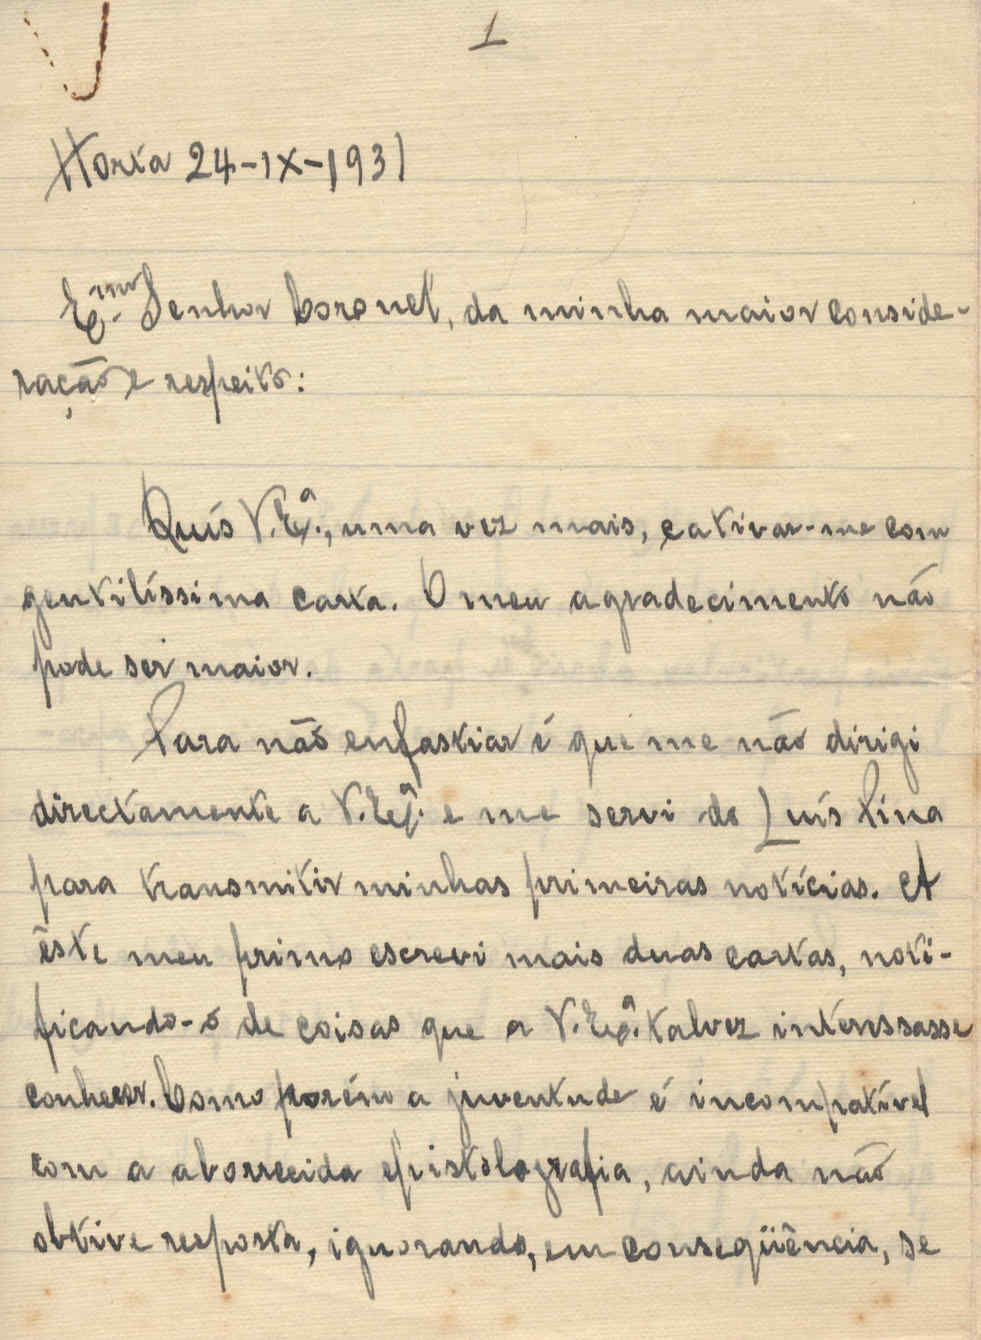 1
Horta 24-IX-1931
Ex.mo Senhor Coronel, da minha maior conside-
ração e respeito:
Quís V. Ex.ª, uma vez mais, cativar-me com
gentilíssima carta. O meu agradecimento não
pode ser maior.
Para não enfastiar é que me não dirigi
directamente a V. Ex.ª e me servi do Luís Pina
para transmitir minhas primeiras notícias. A
êste meu primo escrevi mais duas cartas, noti-
ficando-o de coisas que a V. Ex.ª talvez interessasse
conhecer. Como porém a juventude é incompatível
com a aborrecida epistolografia, ainda não
obtive resposta, ignorando, em conseqüência, se